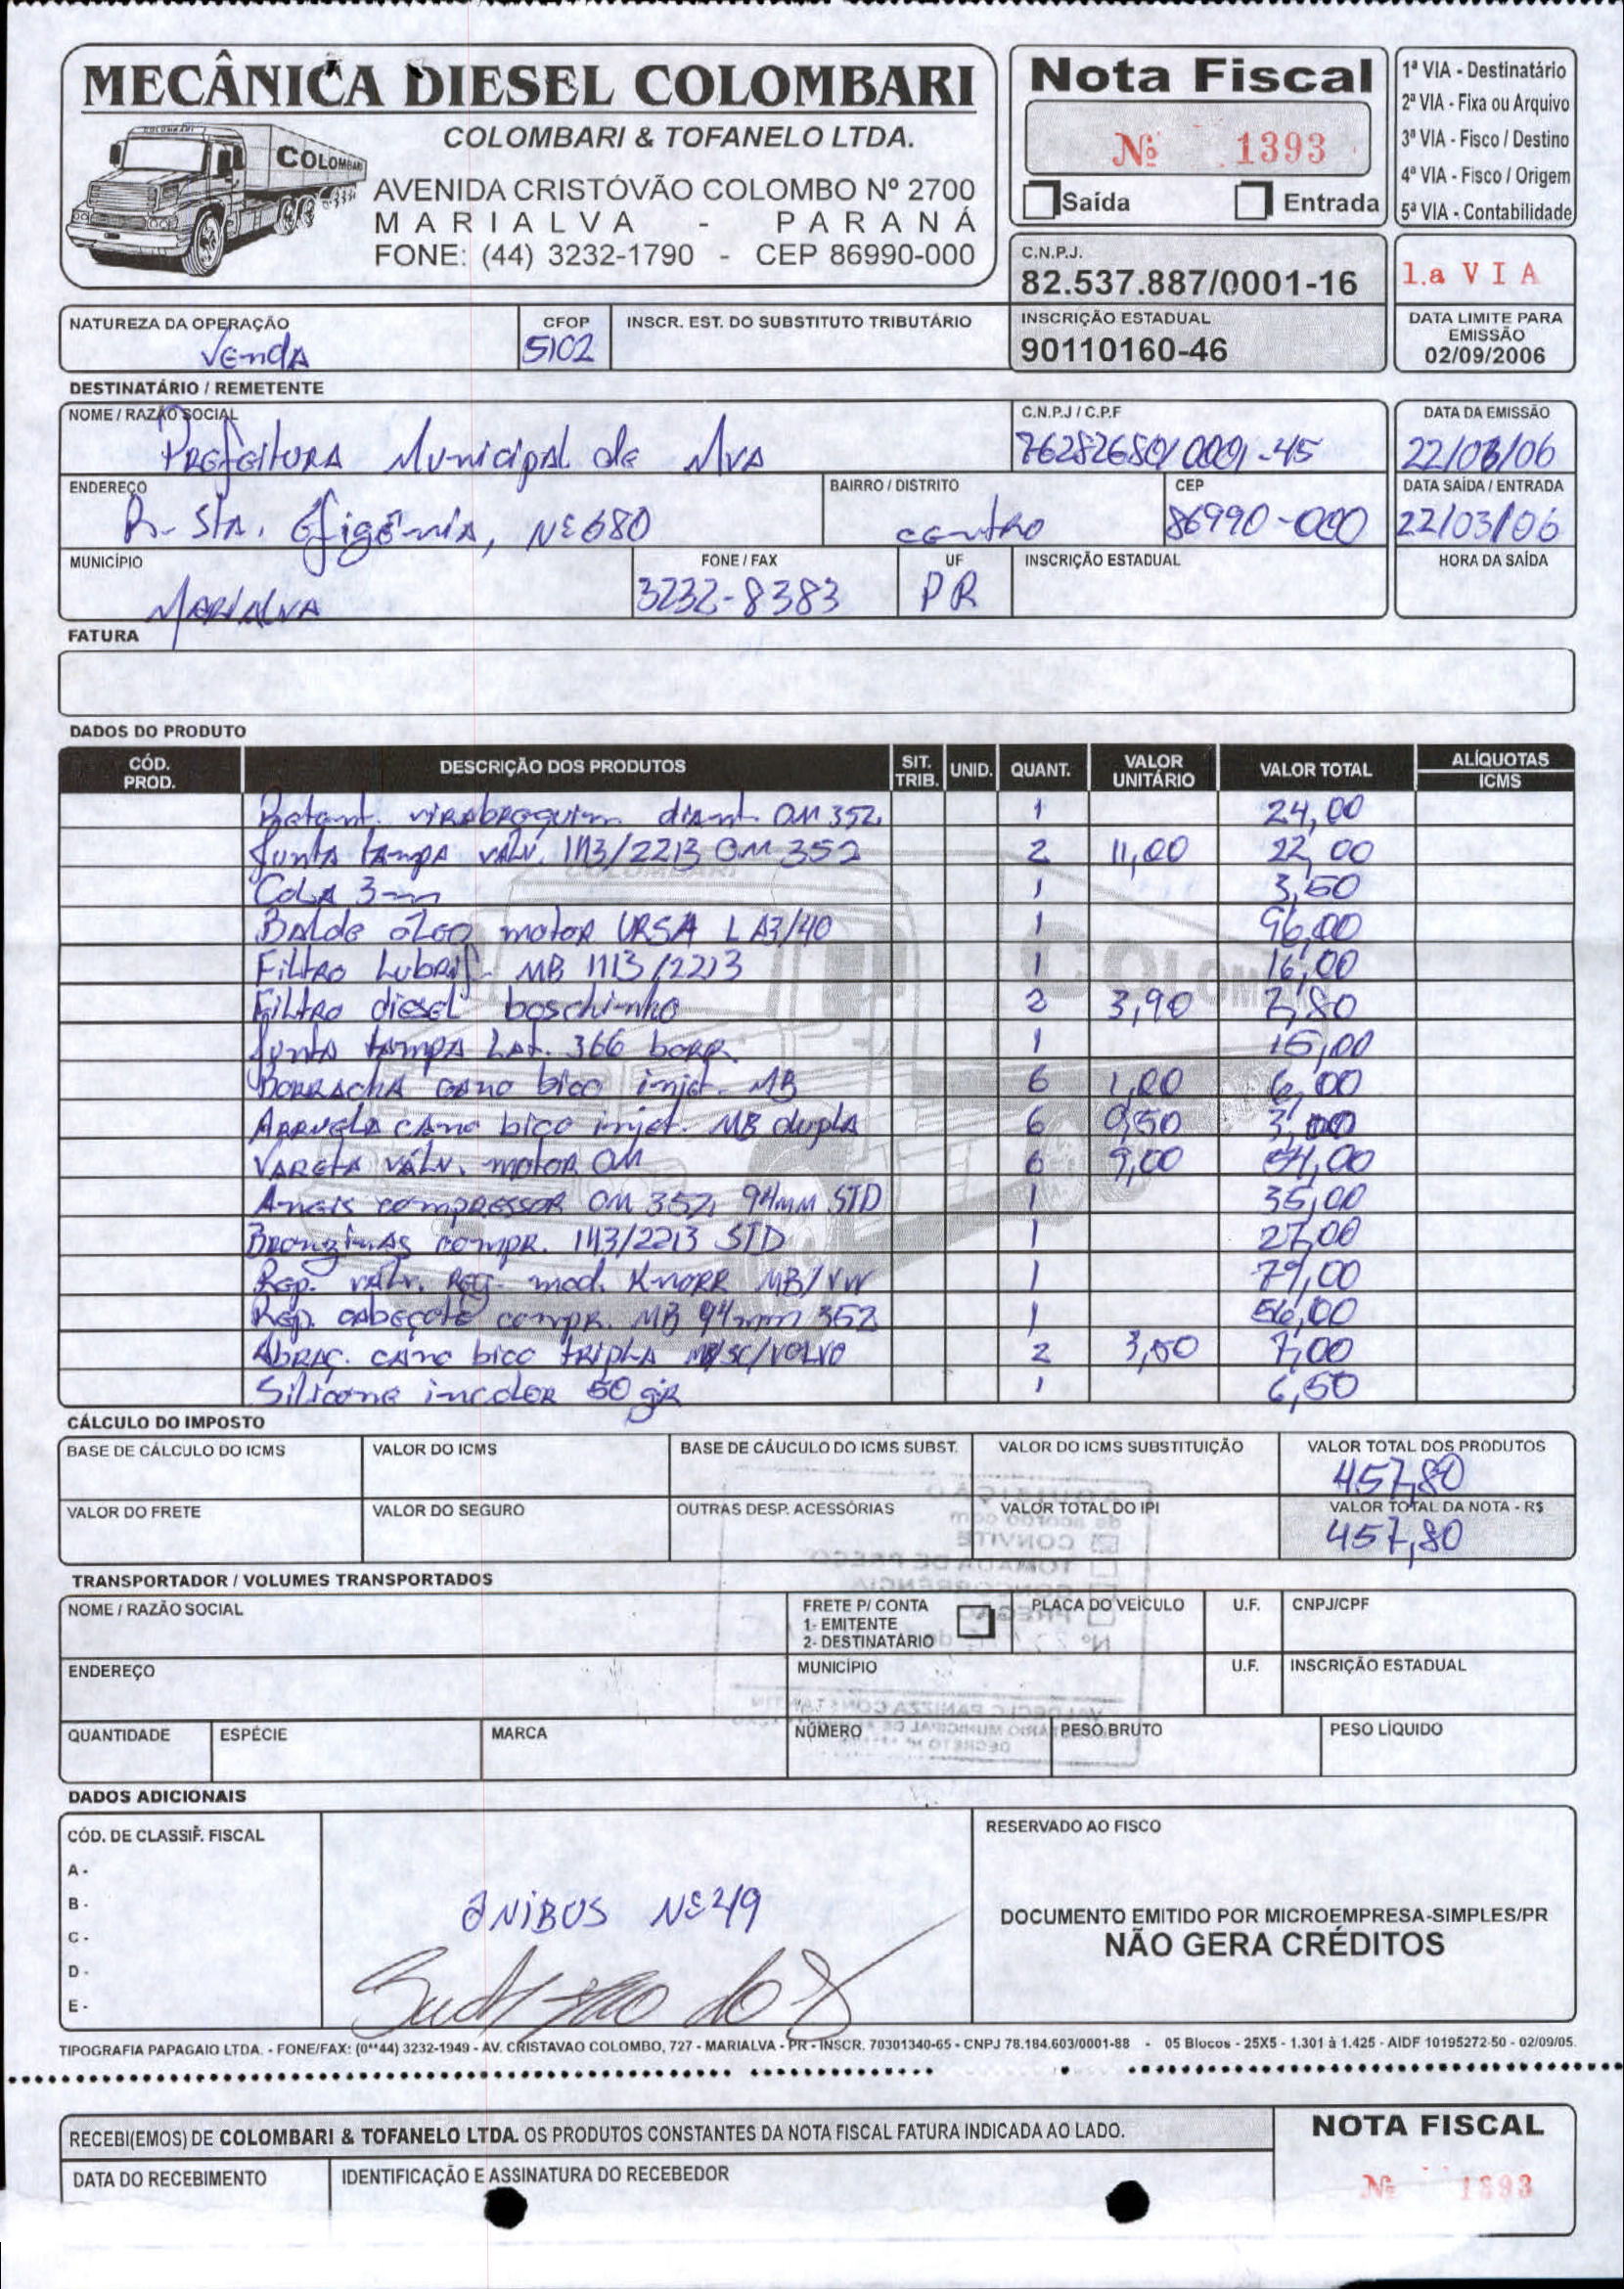 MECÂNICA DIESEL COLOMBARI
COLOMBARI & TOFANELO LTDA.
COLOMBARI
AVENIDA CRISTÓVÃO COLOMBO Nº 2700
MARIALVA - PARANÁ
FONE: (44) 3232-1790 - CEP 86990-000
Nota Fiscal
Nº 1393
Saída Entrada
1ª VIA - Destinatário
2ª VIA - Fixa ou Arquivo
3ª VIA - Fisco / Destino
4ª VIA - Fisco / Origem
5ª VIA - Contabilidade
C.N.P.J.
82.537.887/0001-16
1.a VIA
NATUREZA DA OPERAÇÃO CFOP INSCR. EST. DO SUBSTITUTO TRIBUTÁRIO
Venda 5102
INSCRIÇÃO ESTADUAL
90110160-46
DATA LIMITE PARA
EMISSÃO
02/09/2006
DESTINATÁRIO / REMETENTE
NOME / RAZÃO SOCIAL C.N.P.J / C.P.F DATA DA EMISSÃO
Prefeitura Municipal de Mva 76282680/0001-45 22/03/06
ENDEREÇO BAIRRO / DISTRITO CEP DATA SAÍDA / ENTRADA
R. Sta. Efigênia, Nº 680 centro 86990-000 22/03/06
MUNICÍPIO FONE / FAX UF INSCRIÇÃO ESTADUAL HORA DA SAÍDA
Marialva 3232-8383 PR
FATURA
DADOS DO PRODUTO
CÓD. PROD. DESCRIÇÃO DOS PRODUTOS SIT. TRIB. UNID. QUANT. VALOR UNITÁRIO VALOR TOTAL ALÍQUOTAS ICMS
Retent. virabrequim diant. OM 352. 1 24,00
Junta tampa valv. 1113/2213 OM 352 2 11,00 22,00
Cola 3m 1 3,50
Balde óleo motor URSA LA3/40 1 96,00
Filtro Lubrif. MB 1113/2213 1 16,00
Filtro diesel boschinho 2 3,90 7,80
Junta tampa Lat. 366 borr. 1 15,00
Borracha cano bico injet. MB 6 1,00 6,00
Arruela cano bico injet. MB dupla 6 0,50 3,00
Vareta válv. motor OM 6 9,00 54,00
Aneis compressor OM 352 94mm STD 1 35,00
Bronzinas compr. 1113/2213 STD 1 27,00
Rep. valv. Reg. mod. Knorr MB/VW 1 79,00
Rep. cabeçote compr. MB 94mm 352 1 56,00
Abraç. cano bico tripla MB/SC/VOLVO 2 3,50 7,00
Silicone incolor 50 gr 1 6,50
CÁLCULO DO IMPOSTO
BASE DE CÁLCULO DO ICMS VALOR DO ICMS BASE DE CÁUCULO DO ICMS SUBST. VALOR DO ICMS SUBSTITUIÇÃO VALOR TOTAL DOS PRODUTOS
457,80
VALOR DO FRETE VALOR DO SEGURO OUTRAS DESP. ACESSÓRIAS VALOR TOTAL DO IPI VALOR TOTAL DA NOTA - R$
457,80
TRANSPORTADOR / VOLUMES TRANSPORTADOS
NOME / RAZÃO SOCIAL FRETE P/ CONTA PLACA DO VEÍCULO U.F. CNPJ/CPF
1- EMITENTE
2- DESTINATÁRIO
ENDEREÇO MUNICÍPIO U.F. INSCRIÇÃO ESTADUAL
QUANTIDADE ESPÉCIE MARCA NÚMERO PESO BRUTO PESO LÍQUIDO
DADOS ADICIONAIS
CÓD. DE CLASSIF. FISCAL
A -
B -
C -
D -
E -
ônibus Nº 49
RESERVADO AO FISCO
DOCUMENTO EMITIDO POR MICROEMPRESA-SIMPLES/PR
NÃO GERA CRÉDITOS
TIPOGRAFIA PAPAGAIO LTDA. - FONE/FAX: (0**44) 3232-1949 - AV. CRISTAVAO COLOMBO, 727 - MARIALVA - PR - INSCR. 70301340-65 - CNPJ 78.184.603/0001-88 - 05 Blocos - 25X5 - 1.301 à 1.425 - AIDF 10195272-50 - 02/09/05.
RECEBI(EMOS) DE COLOMBARI & TOFANELO LTDA. OS PRODUTOS CONSTANTES DA NOTA FISCAL FATURA INDICADA AO LADO.
DATA DO RECEBIMENTO IDENTIFICAÇÃO E ASSINATURA DO RECEBEDOR
NOTA FISCAL
Nº 1393